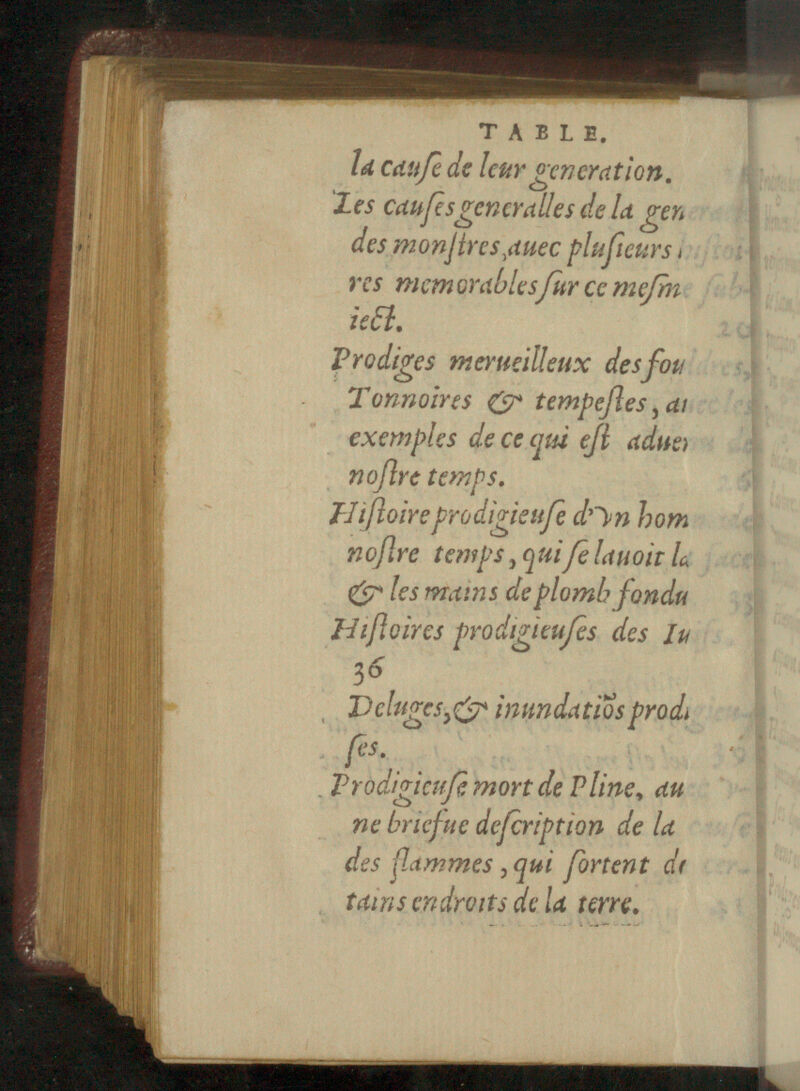 TABLE.
la cauſe de leur generation.
Les cauſes generalles de la gen
des monſtres, auec pluſieurs
res memorables ſur ce meſm
iect.
Prodiges merueilleux des fou
Tonnoires & tempeſtes, a
exemples de ce qui eſt adue
noſtre temps.
Hiſtoire prodigieuſe d'vn hom
noſtre temps, qui ſe lauoit la
& les mains de plomb fondu
Hiſtoires prodigieuſes des Iu
36
Deluges, & inundatiōs prodi
ſes.
Prodigieuſe mort de Pline, au
ne briefue deſcription de la
des flammes, qui ſortent de
tains endroits de la terre.